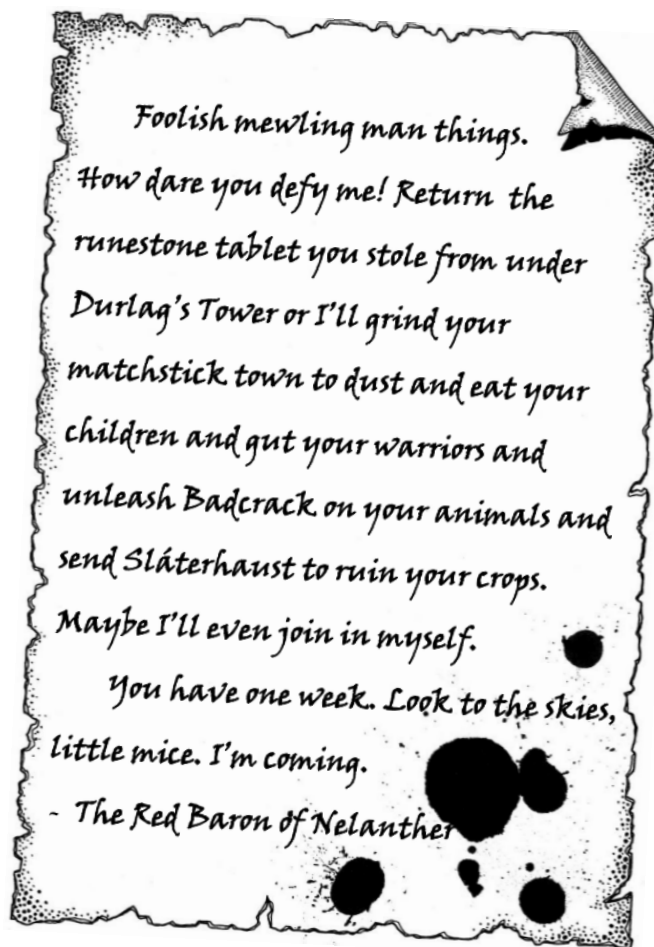 Foolish mewling man things.
How dare you defy me! Return the
runestone tablet you stole from under
Durlag's Tower or I'll grind your
matchstick town to dust and eat your
children and gut your warriors and
unleash Badcrack on your animals and
send Sláterhaust to ruin your crops.
Maybe I'll even join in myself.
You have one week. Look to the skies,
little mice. I'm coming.
- The Red Baron of Nelanther